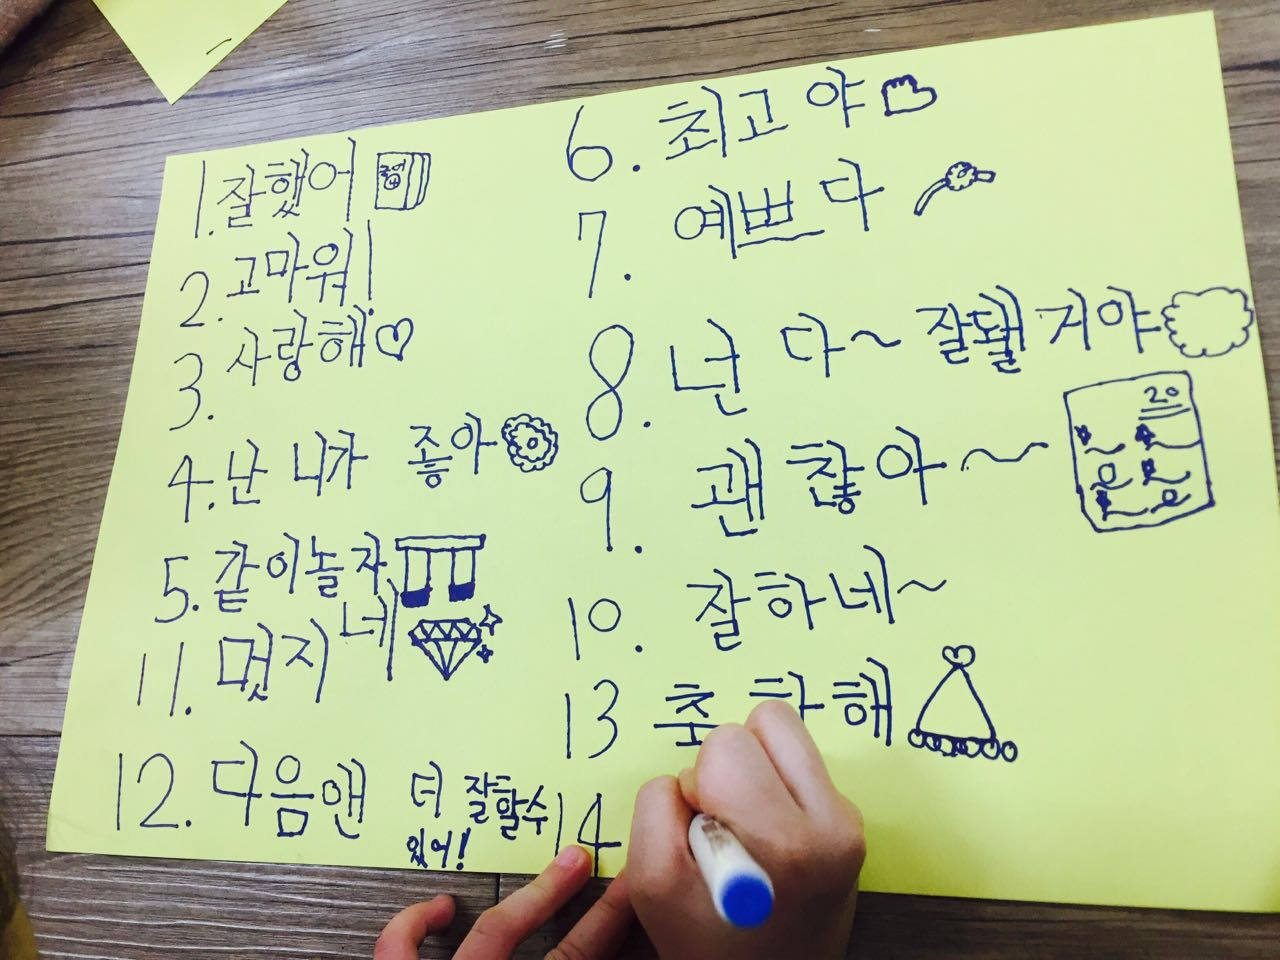 1. 잘했어
2. 고마워!
3. 사랑해
4. 난 니가 좋아
5. 같이놀자
11. 멋지네
12. 다음엔 더 잘할수
있어!
6. 최고야
7. 예쁘다
8. 넌 다~ 잘될거야
9. 괜찮아~
20
10. 잘하네~
13 해
14